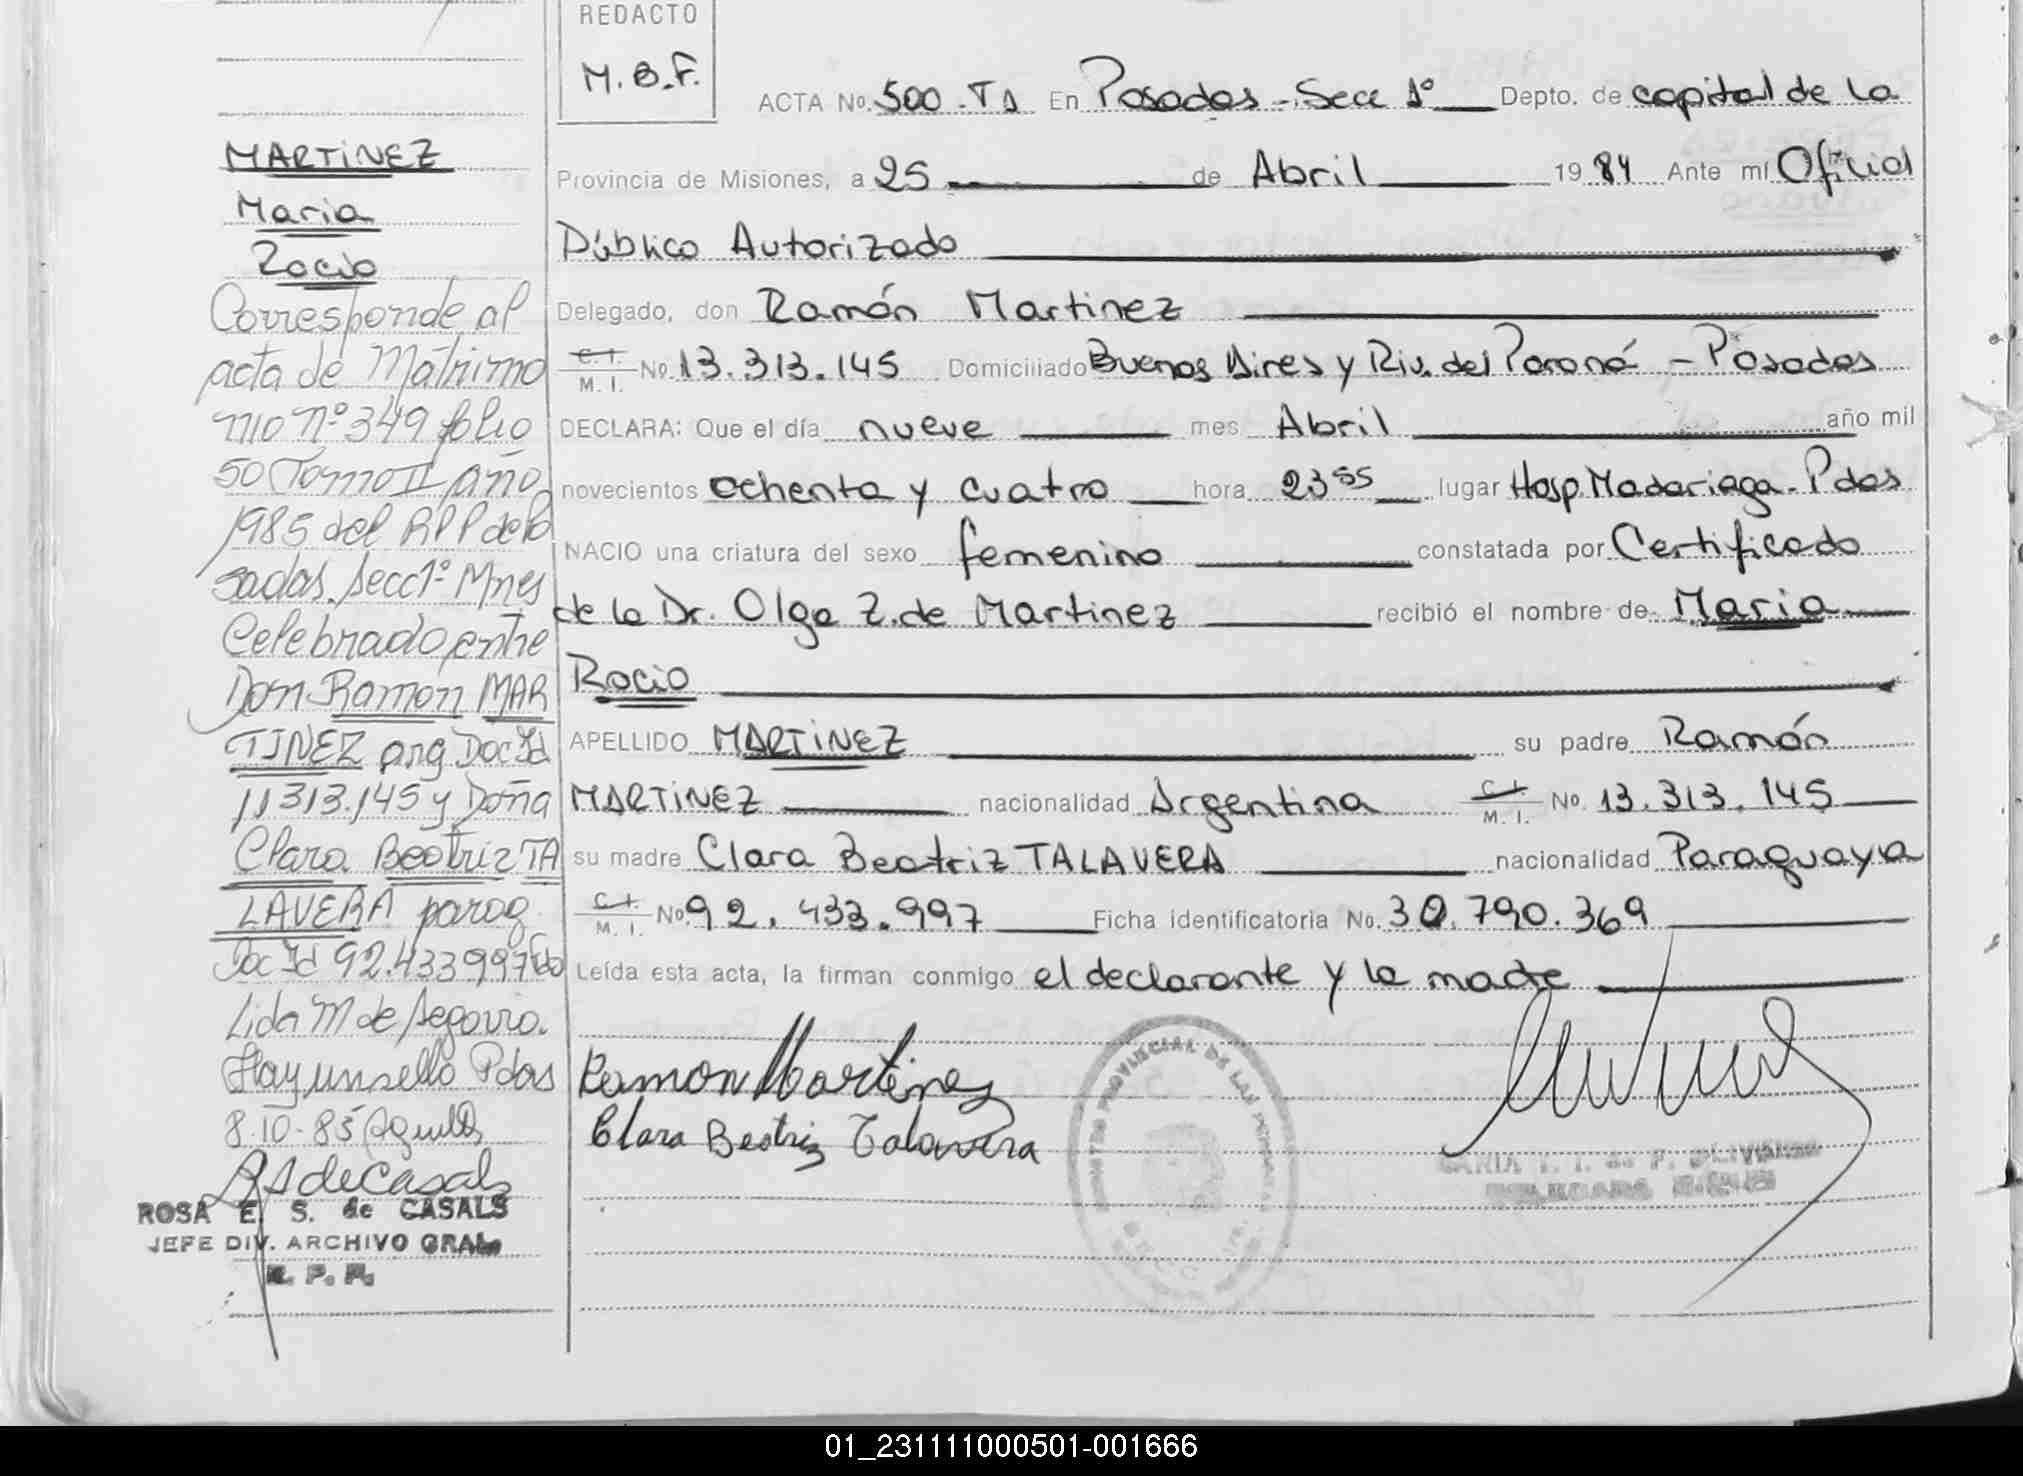 REDACTO
M.B.F.
ACTA No. 500-T1 En Posadas - Secc 1º Depto. de capital de la
Provincia de Misiones, a 25 de Abril 1984 Ante mí Oficial
Público Autorizado
Delegado, don Ramón Martinez
C.I. M.I. No. 13.313.145 Domiciliado Buenos Aires y Riv. del Paraná - Posadas
DECLARA: Que el día nueve mes Abril año mil
novecientos ochenta y cuatro hora 23 55 lugar Hosp. Madariaga - Pdas
NACIO una criatura del sexo femenino constatada por Certificado
de la Dr. Olga Z. de Martinez recibió el nombre de Maria
Rocio
APELLIDO MARTINEZ su padre Ramón
MARTINEZ nacionalidad Argentina C.I. M.I. No. 13.313.145
su madre Clara Beatriz TALAVERA nacionalidad Paraguaya
C.I. M.I. No 92.433.997 Ficha identificatoria No. 30.790.369
Leída esta acta, la firman conmigo el declarante y la madre
Ramon Martinez
Clara Beatriz Talavera
MARTINEZ
Maria
Rocio
Corresponde al
acta de Matrimo
nio nº 349 folio
50 Tomo II año
1985 del RPP de Po
sadas. Secc 1º Mnes
Celebrado entre
Don Ramon MAR
TINEZ arg Doc Id
11313.145 y Doña
Clara Beatriz TA
LAVERA parag.
Doc Id 92.433997 Fdo
Lida M de Segovia.
Hay un sello Pdas
8-10-85
RS de Casals
ROSA E. S. de CASALS
JEFE DIV. ARCHIVO GRAL.
R. P. P.
PROVINCIAL DE LAS PERSONAS
01_231111000501-001666